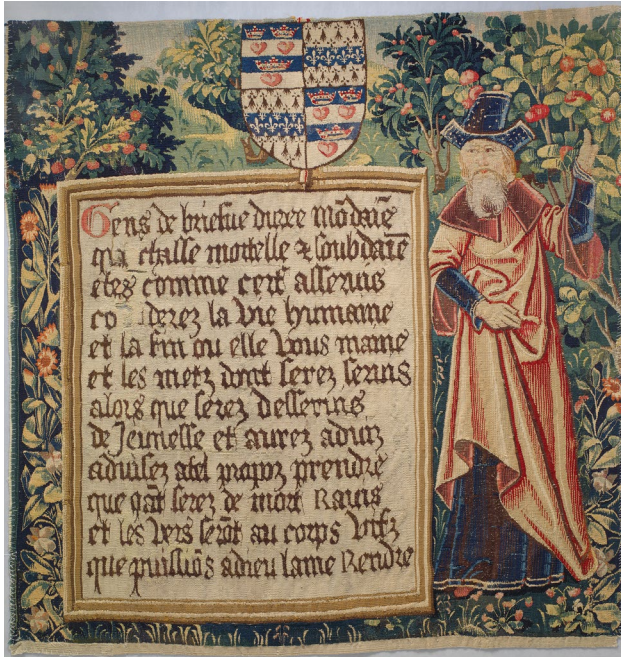 Gens de briefue duree mōdaīe
qui chasse mortelle & soubdaīe
etes comme cerf asseruis
co iderez la vie humaine
et la fin ou elle vous maine
et les metz dont serez seruis
alors que serez desseruis
de Jeunesse et aurez aduiz
aduisez a tel propoz prendre
que qāt serez de mort Rauis
et les vers serōt au corps vifz
que puissiōs a dieu lame Rendre